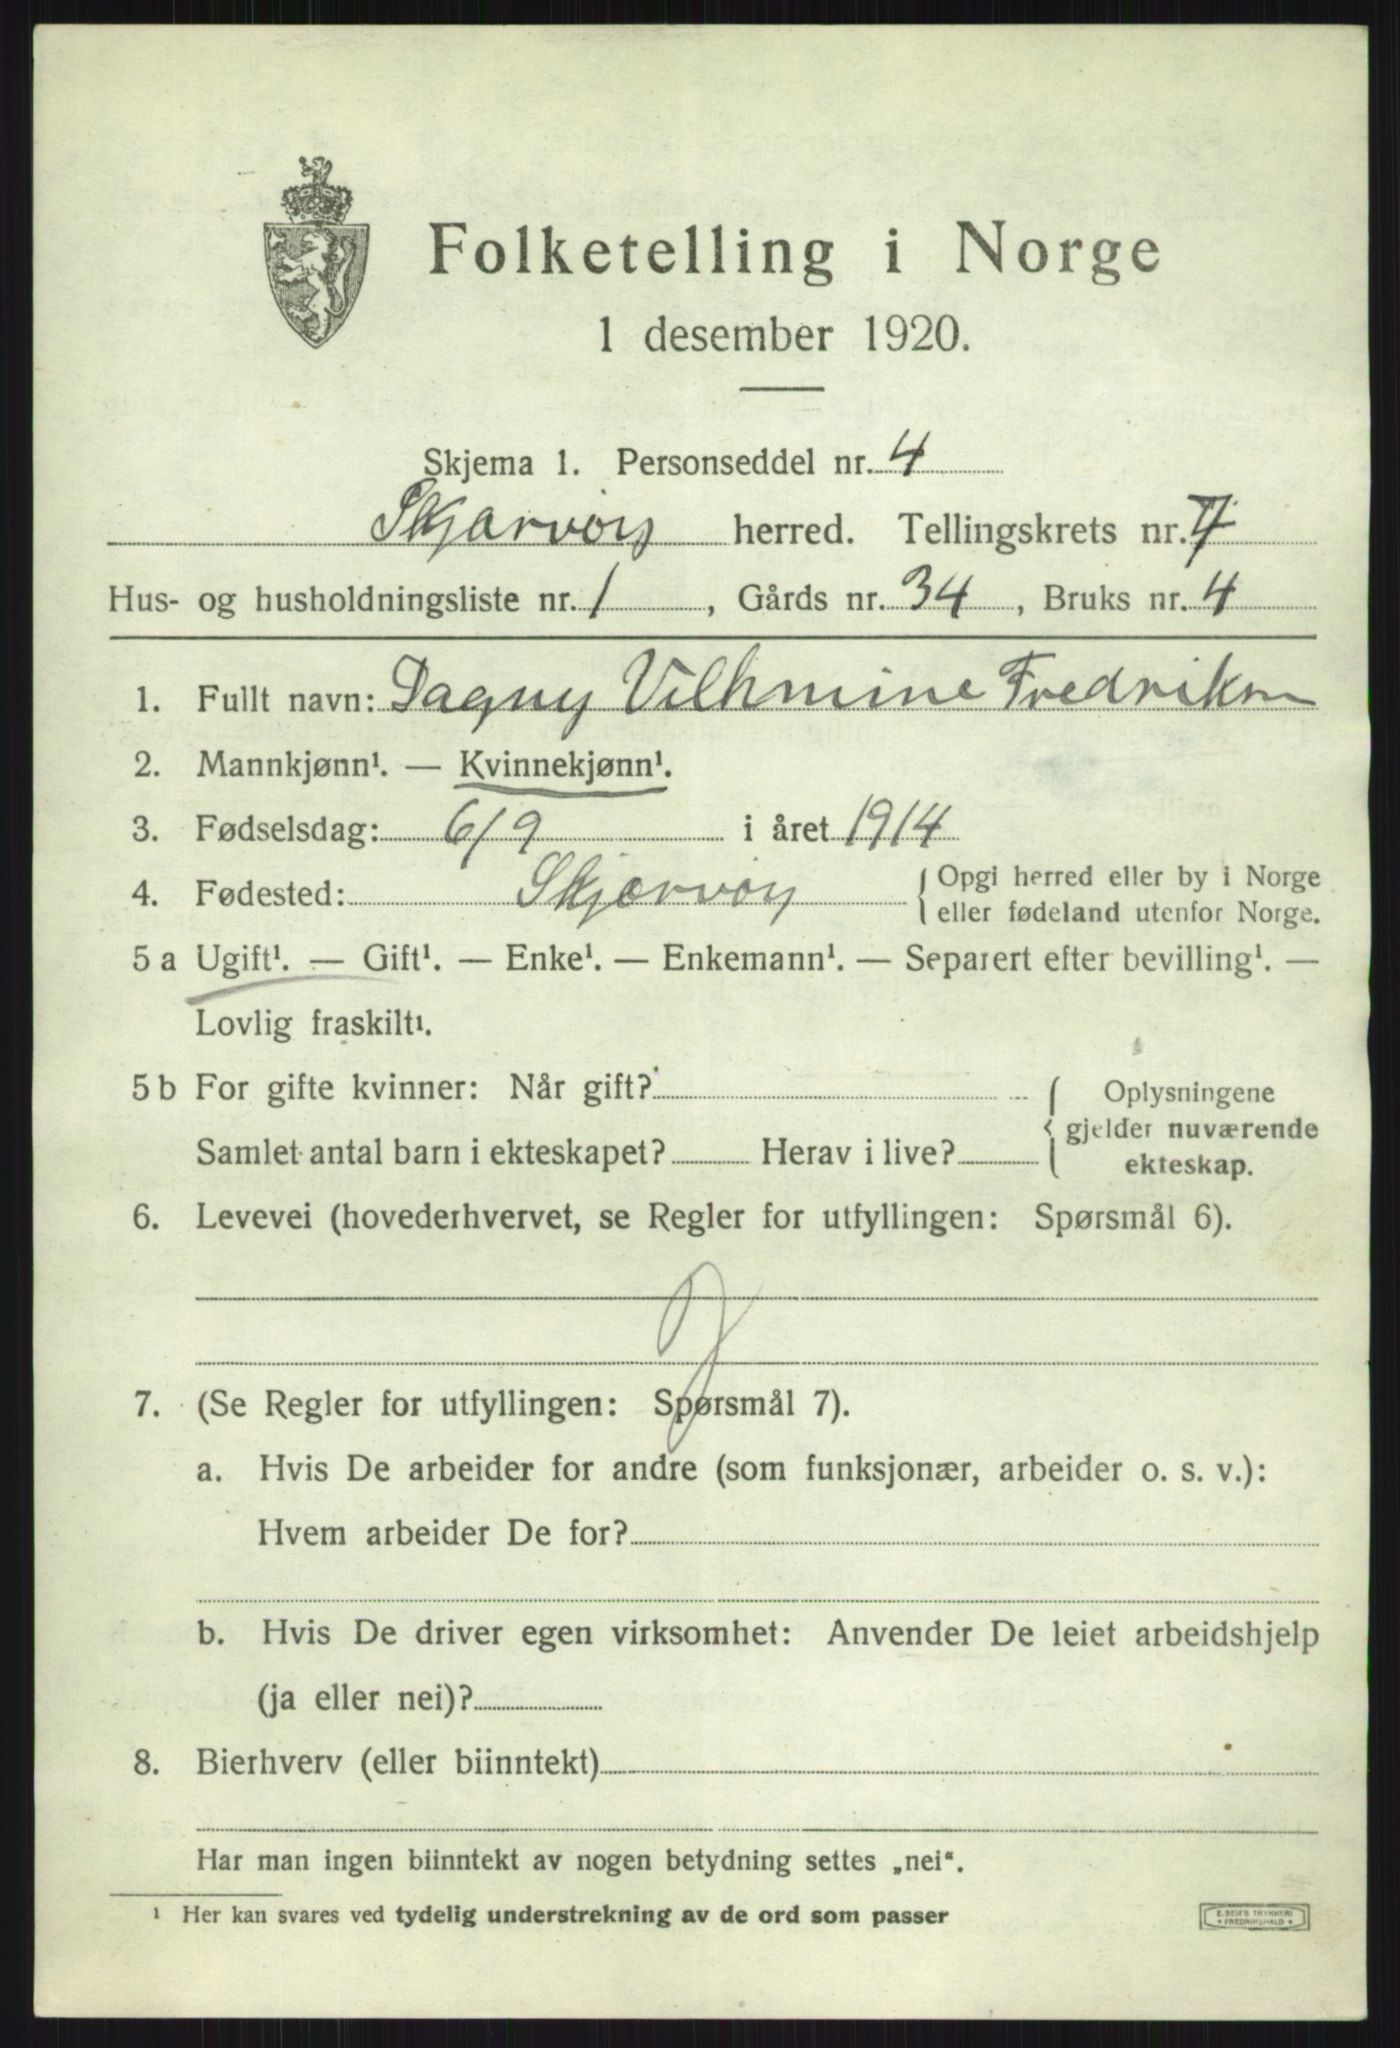 Folketelling i Norge
1 desember 1920.
Skjema 1. Personseddel nr. 4
Skjærvöy herred. Tellingskrets nr. 7
Hus- og husholdningsliste nr. 1, Gårds nr. 34, Bruks nr. 4
1. Fullt navn: Dagny Vilhmine Fredriksn
2. Mannkjønn¹. — Kvinnekjønn¹.
3. Fødselsdag: 6/9 i året 1914
4. Fødested: Skjærvöy { Opgi herred eller by i Norge
eller fødeland utenfor Norge.
5 a Ugift¹. — Gift¹. — Enke¹. — Enkemann¹. — Separert efter bevilling¹. —
Lovlig fraskilt¹.
5 b For gifte kvinner: Når gift?
Samlet antal barn i ekteskapet? Herav i live?
{ Oplysningene
gjelder nuværende
ekteskap.
6. Levevei (hovederhvervet, se Regler for utfyllingen: Spørsmål 6).
7. (Se Regler for utfyllingen: Spørsmål 7).
a. Hvis De arbeider for andre (som funksjonær, arbeider o. s. v.):
Hvem arbeider De for?
b. Hvis De driver egen virksomhet: Anvender De leiet arbeidshjelp
(ja eller nei)?
8. Bierhverv (eller biinntekt)
Har man ingen biinntekt av nogen betydning settes „nei“.
¹ Her kan svares ved tydelig understrekning av de ord som passer
E. SEM'S TRYKKERI
• FREDRIKSHALD •